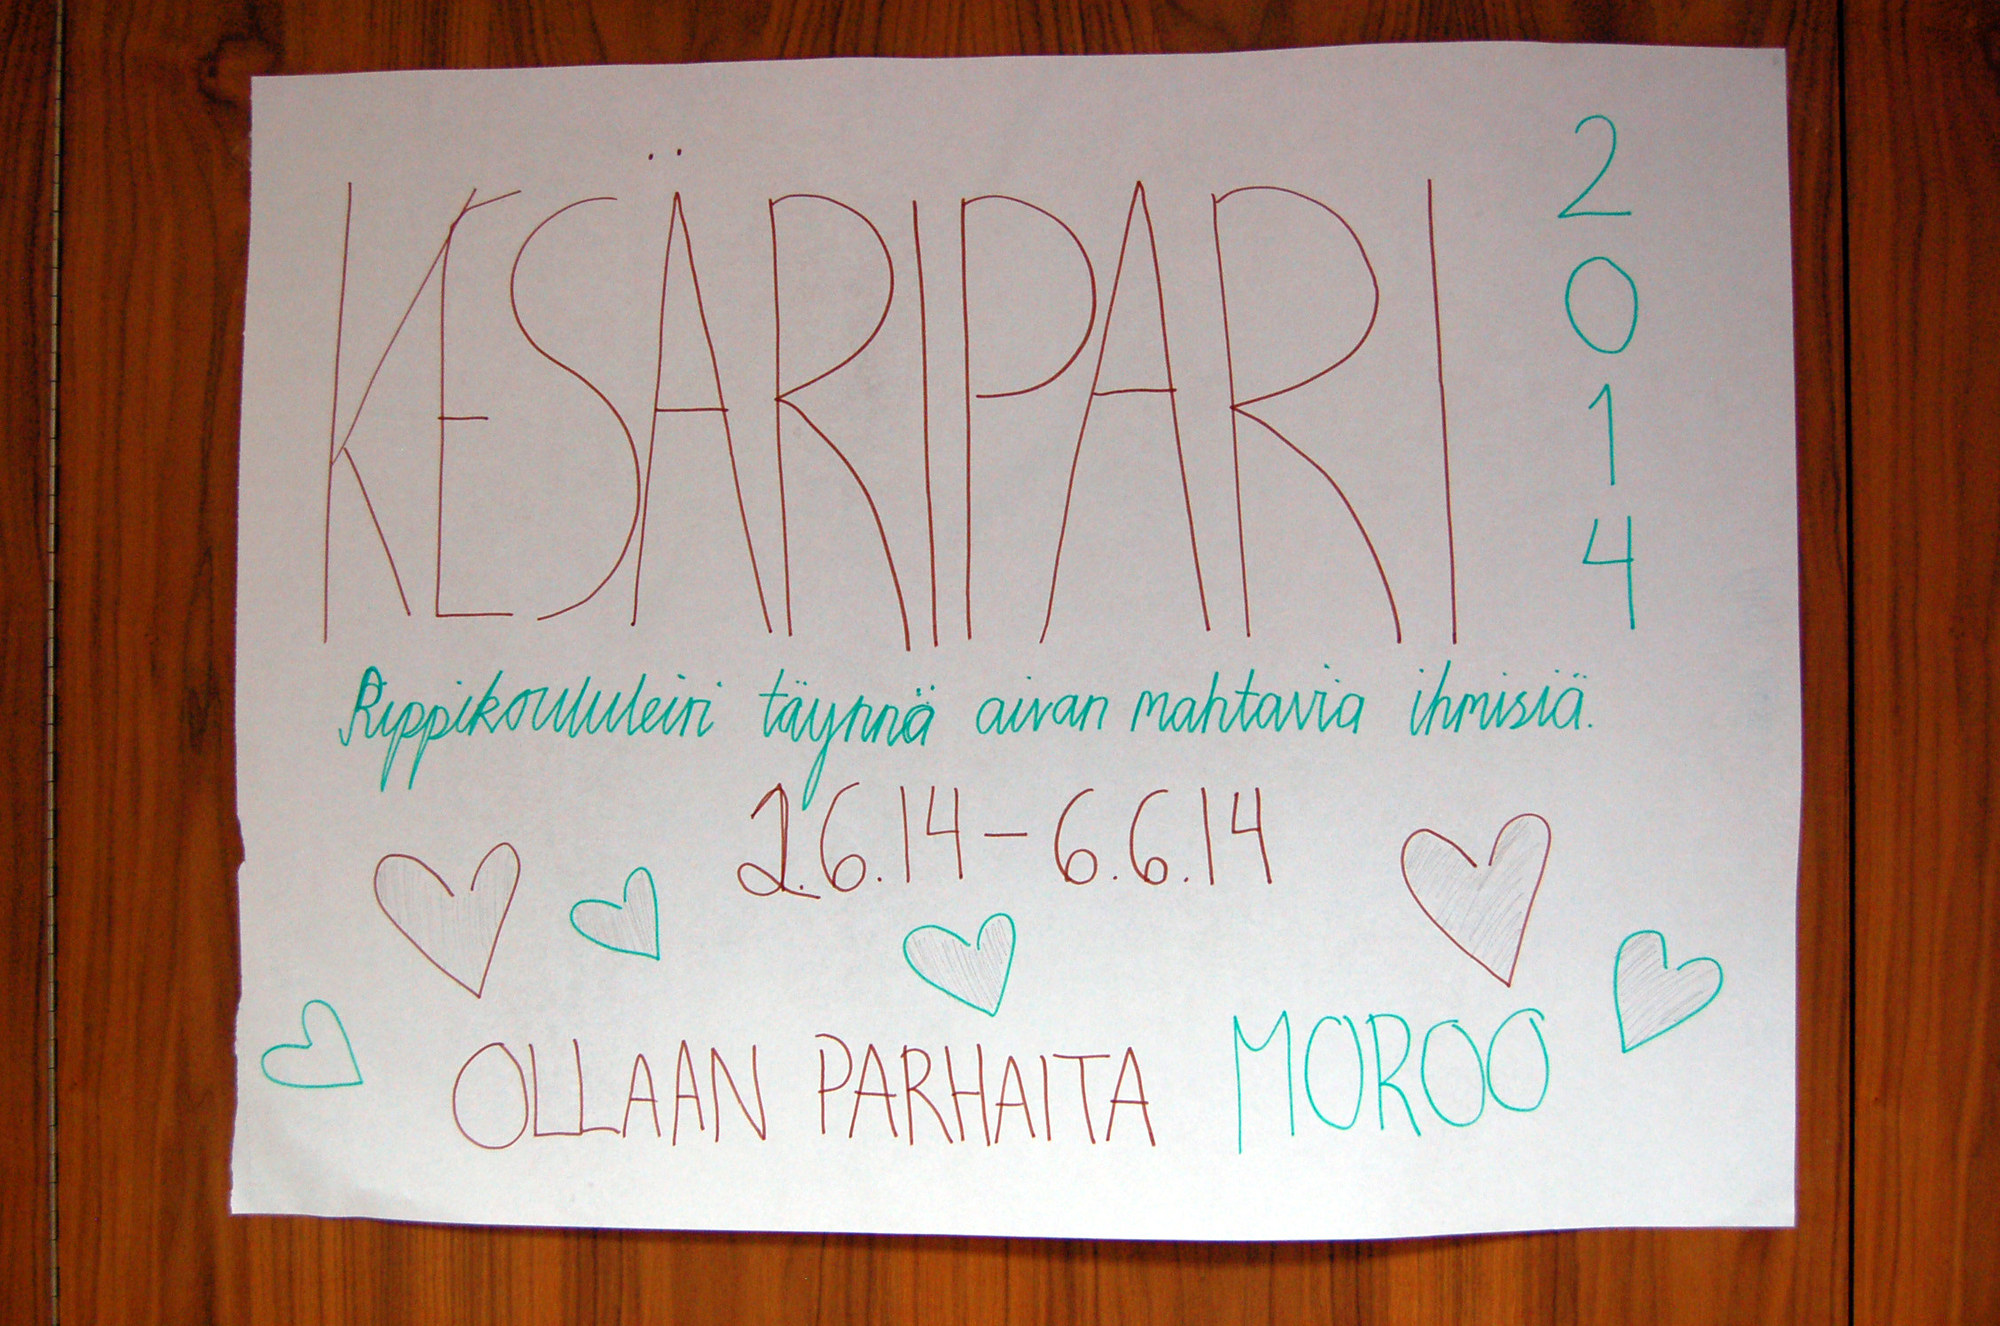 KESÄRIPARI
2014
Rippikoululeiri täynnä aivan mahtavia ihmisiä.
2.6.14 – 6.6.14
OLLAAN PARHAITA MOROO